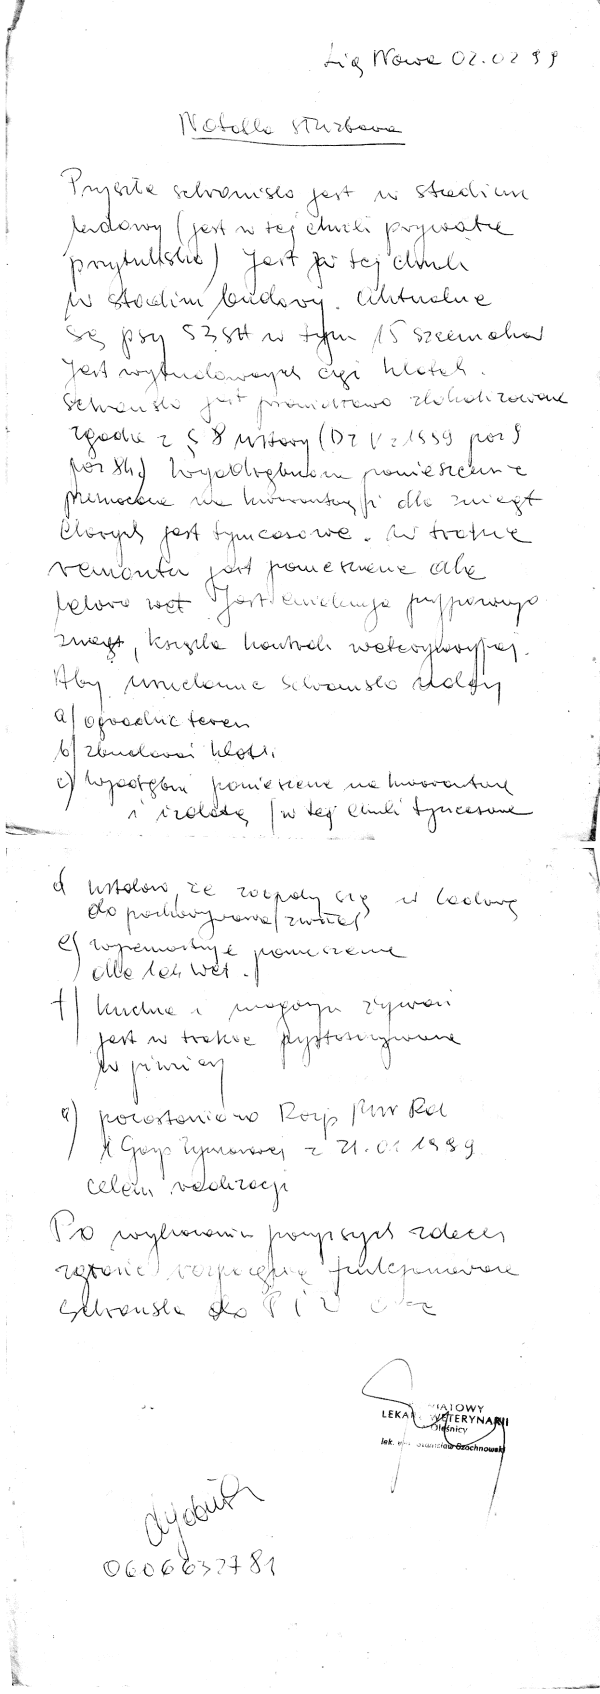 Lig Nowa 02.02 99
Notatka służbowa
Przyszłe schronisko jest w stadium
budowy (jest w tej chwili prywatne
przytulisko) Jest w tej chwili
w stadium budowy. Aktualnie
są psy szt w tym 15 szczeniaków
Jest wybudowanych części klatek.
Schronisko jest prawidłowo zlokalizowane
zgodnie z § 8 ustawy (Dz U z 1999 poz
poz 84) Wyodrębnione pomieszczenie
przeznaczone na kwarantannę i dla zwierząt
chorych jest tymczasowe. W trakcie
remontu jest pomieszczenie dla
lekarza wet Jest ewidencja przyjmowanych
zwierząt, książka kontroli weterynaryjnej.
Aby schronisko należy
a) ogrodzić teren
b) zbudować klatki
c) wyodrębnić pomieszczenie na kwarantannę
i izolatkę (w tej chwili tymczasowe
d
do przechowywania zwłok)
e) pomieszczenie
dla lek wet.
f) kuchnia i magazyn żywności
jest w trakcie przystosowywania
w piwnicy
pozostawiono Rozp Min Rol
i Gosp Żywnościowej z 21.01 1999
celem realizacji
Po wykonaniu powyższych zaleceń
zgłosić rozpoczęcie funkcjonowania
Schroniska do P I W
IATOWY
LEKARZ WETERYNARII
Oleśnicy
lek. wet. Stanisław Szachnowski
0606632781